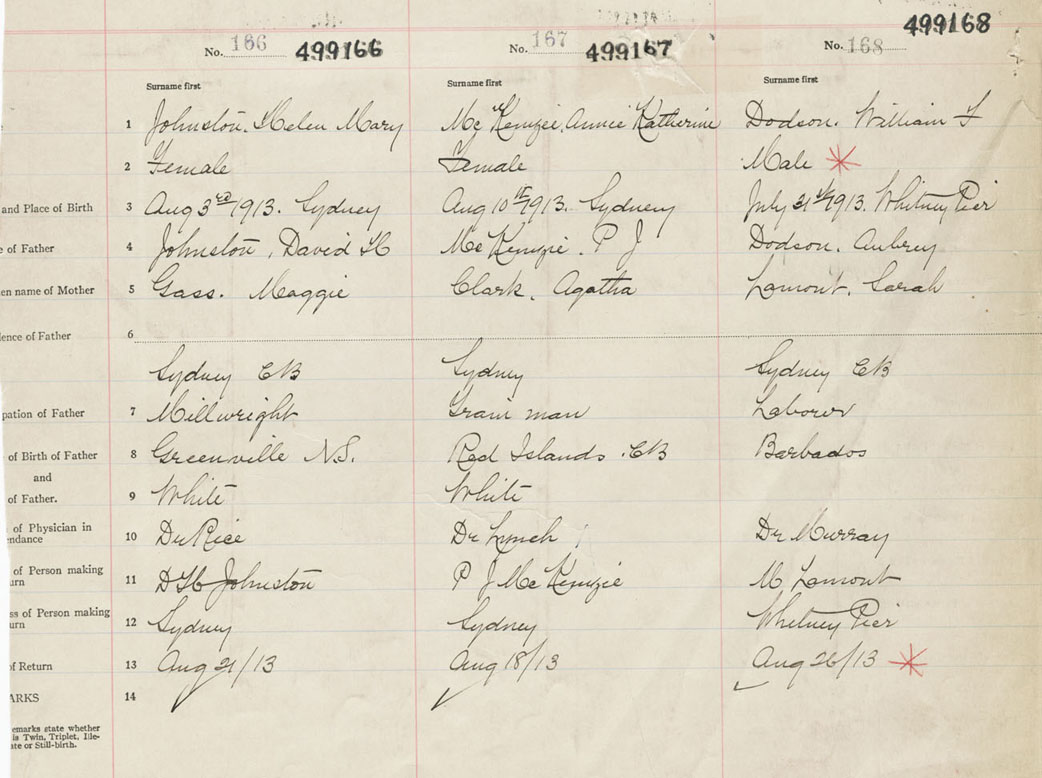 499168
No. 166 499166 No. 167 499167 No. 168
Surname first Surname first Surname first
1 Johnston, Helen Mary Mc Kenzie, Annie Katherine Dodson, William F
2 Female Female Male
and Place of Birth 3 Aug 3rd 1913. Sydney Aug 10th 1913. Sydney July 31st 1913. Whitney Pier
e of Father 4 Johnston, David H Mc Kenzie. P J Dodson, Aubrey
en name of Mother 5 Gass. Maggie Clark, Agatha Lamont, Sarah
lence of Father 6
Sydney CB Sydney Sydney CB
pation of Father 7 Millwright man Laborer
of Birth of Father 8 Greenville N.S. Red Islands. CB Barbados
and
of Father. 9 White White
of Physician in
endance 10 Dr Rice Dr Lynch Dr Murray
of Person making
urn 11 D H Johnston P J Mc Kenzie M Lamont
ss of Person making
urn 12 Sydney Sydney Whitney Pier
of Return 13 Aug 21/13 Aug 18/13 Aug 26/13
ARKS 14
emarks state whether
is Twin, Triplet, Ille-
ate or Still-birth.